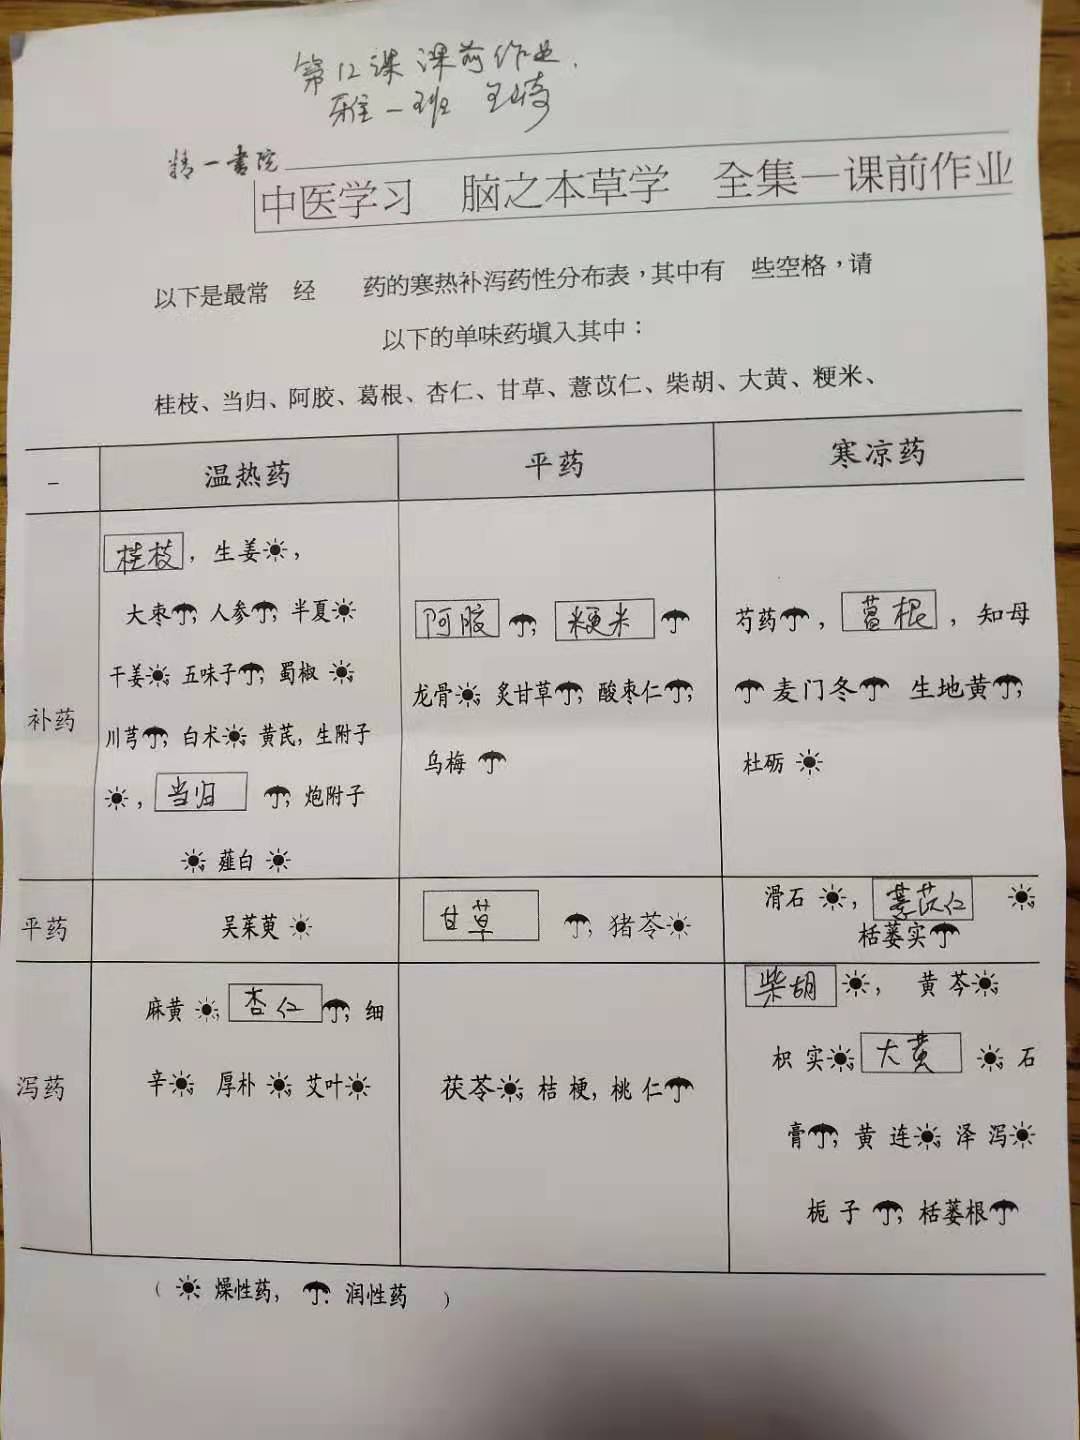 第12课 课前作业.
雅一班 王崎
精一書院
中医学习 脑之本草学 全集一课前作业
以下是最常 经 药的寒热补泻药性分布表，其中有 些空格，请
以下的单味药填入其中：
桂枝、当归、阿胶、葛根、杏仁、甘草、薏苡仁、柴胡、大黄、粳米、
– 温热药 平药 寒凉药
补药
桂枝，生姜☀，
大枣☂，人参☂，半夏☀
干姜☀，五味子☂，蜀椒☀，
川芎☂，白术☀，黄芪，生附子
☀，当归 ☂，炮附子
☀，薤白☀
阿胶☂，粳米☂
龙骨☀，炙甘草☂，酸枣仁☂，
乌梅☂
芍药☂，葛根，知母
☂麦门冬☂ 生地黄☂，
杜砺☀
平药
吴茱萸☀
甘草 ☂，猪苓☀
滑石☀，薏苡仁 ☀，
栝蒌实☂
泻药
麻黄☀，杏仁☂，细
辛☀，厚朴☀，艾叶☀
茯苓☀，桔梗，桃仁☂
柴胡☀，黄芩☀，
枳实☀，大黄 ☀，石
膏☂，黄连☀，泽泻☀
栀子☂，栝蒌根☂
（☀：燥性药，☂：润性药 ）